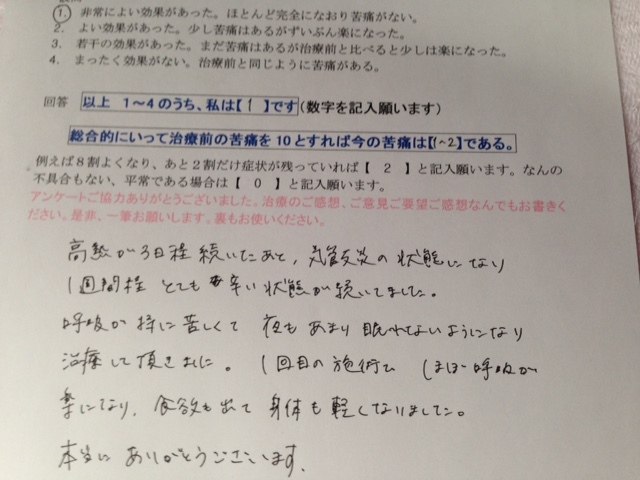 ① 非常によい効果があった。ほとんど完全になおり苦痛がない。
2. よい効果があった。少し苦痛はあるがずいぶん楽になった。
3. 若干の効果があった。まだ苦痛はあるが治療前と比べると少しは楽になった。
4. まったく効果がない。治療前と同じように苦痛がある。
回答 以上 1～4のうち、私は【 1 】です(数字を記入願います)
総合的にいって治療前の苦痛を10とすれば今の苦痛は【1~2】である。
例えば8割よくなり、あと2割だけ症状が残っていれば【 2 】と記入願います。なんの
不具合もない、平常である場合は【 0 】と記入願います。
アンケートご協力ありがとうございました。治療のご感想、ご意見ご要望ご感想なんでもお書きく
ださい。是非、一筆お願いします。裏もお使いください。
高熱が3日程続いたあと、気管支炎の状態になり
1週間程とても辛い状態が続いてました。
呼吸が特に苦しくて夜もあまり眠れないようになり
治療して頂きました。1回目の施術でほぼ呼吸が
楽になり、食欲も出て身体も軽くなりました。
本当にありがとうございます。